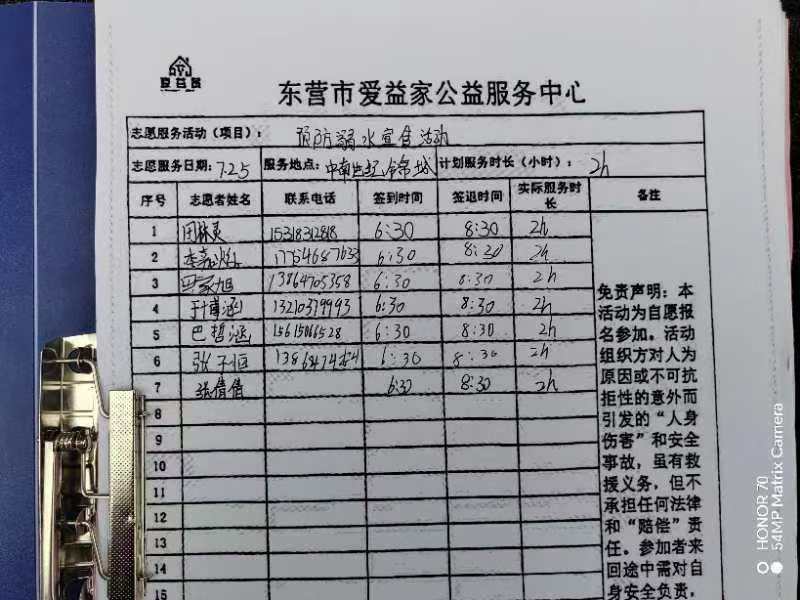 爱益家
东营市爱益家公益服务中心
志愿服务活动（项目）： 预防溺水宣传活动
志愿服务日期：7.25 服务地点：中南世纪锦城 计划服务时长（小时）：2h
序号 志愿者姓名 联系电话 签到时间 签退时间 实际服务时长 备注
1 15318312818 6:30 8:30 2h
2 17754687633 6:30 8:30 2h
3 13864705358 6:30 8:30 2h
4 于博涵 13210379993 6:30 8:30 2h
5 巴哲涵 15615066528 6:30 8:30 2h
6 张子恒 6:30 8:30 2h
7 张倩倩 6:30 8:30 2h
8
9
10
11
12
13
14
15
免责声明：本
活动为自愿报
名参加。活动
组织方对人为
原因或不可抗
拒性的意外而
引发的“人身
伤害”和安全
事故，虽有救
援义务，但不
承担任何法律
和“赔偿”责
任。参加者来
回途中需对自
身安全负责，
HONOR 70
54MP Matrix Camera